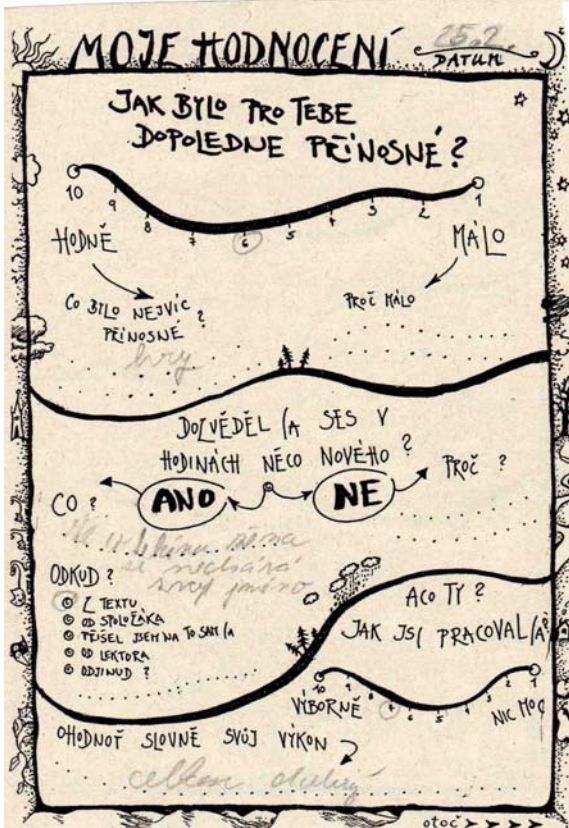 MOJE HODNOCENÍ
25.2.
DATUM
JAK BYLO PRO TEBE
DOPOLEDNE PŘÍNOSNÉ?
10 9 8 7 6 5 4 3 2 1
HODNĚ
MÁLO
CO BYLO NEJVÍC
PŘÍNOSNÉ?
PROČ MÁLO
hry
DOZVĚDĚL/A SES V
HODINÁCH NĚCO NOVÉHO?
CO?
ANO
NE
PROČ?
se nedává
svoje jméno
ODKUD?
Z TEXTU
OD SPOLUŽÁKA
PŘIŠEL JSEM NA TO SÁM/A
OD LEKTORA
ODJINUD?
A CO TY?
JAK JSI PRACOVAL/A?
10 9 8 7 6 5 4 3 2 1
VÝBORNĚ
NIC MOC
OHODNOŤ SLOVNĚ SVŮJ VÝKON
celkem dobrý
otoč